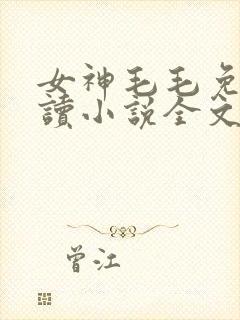 女神毛毛免
讀小說全文
曾江